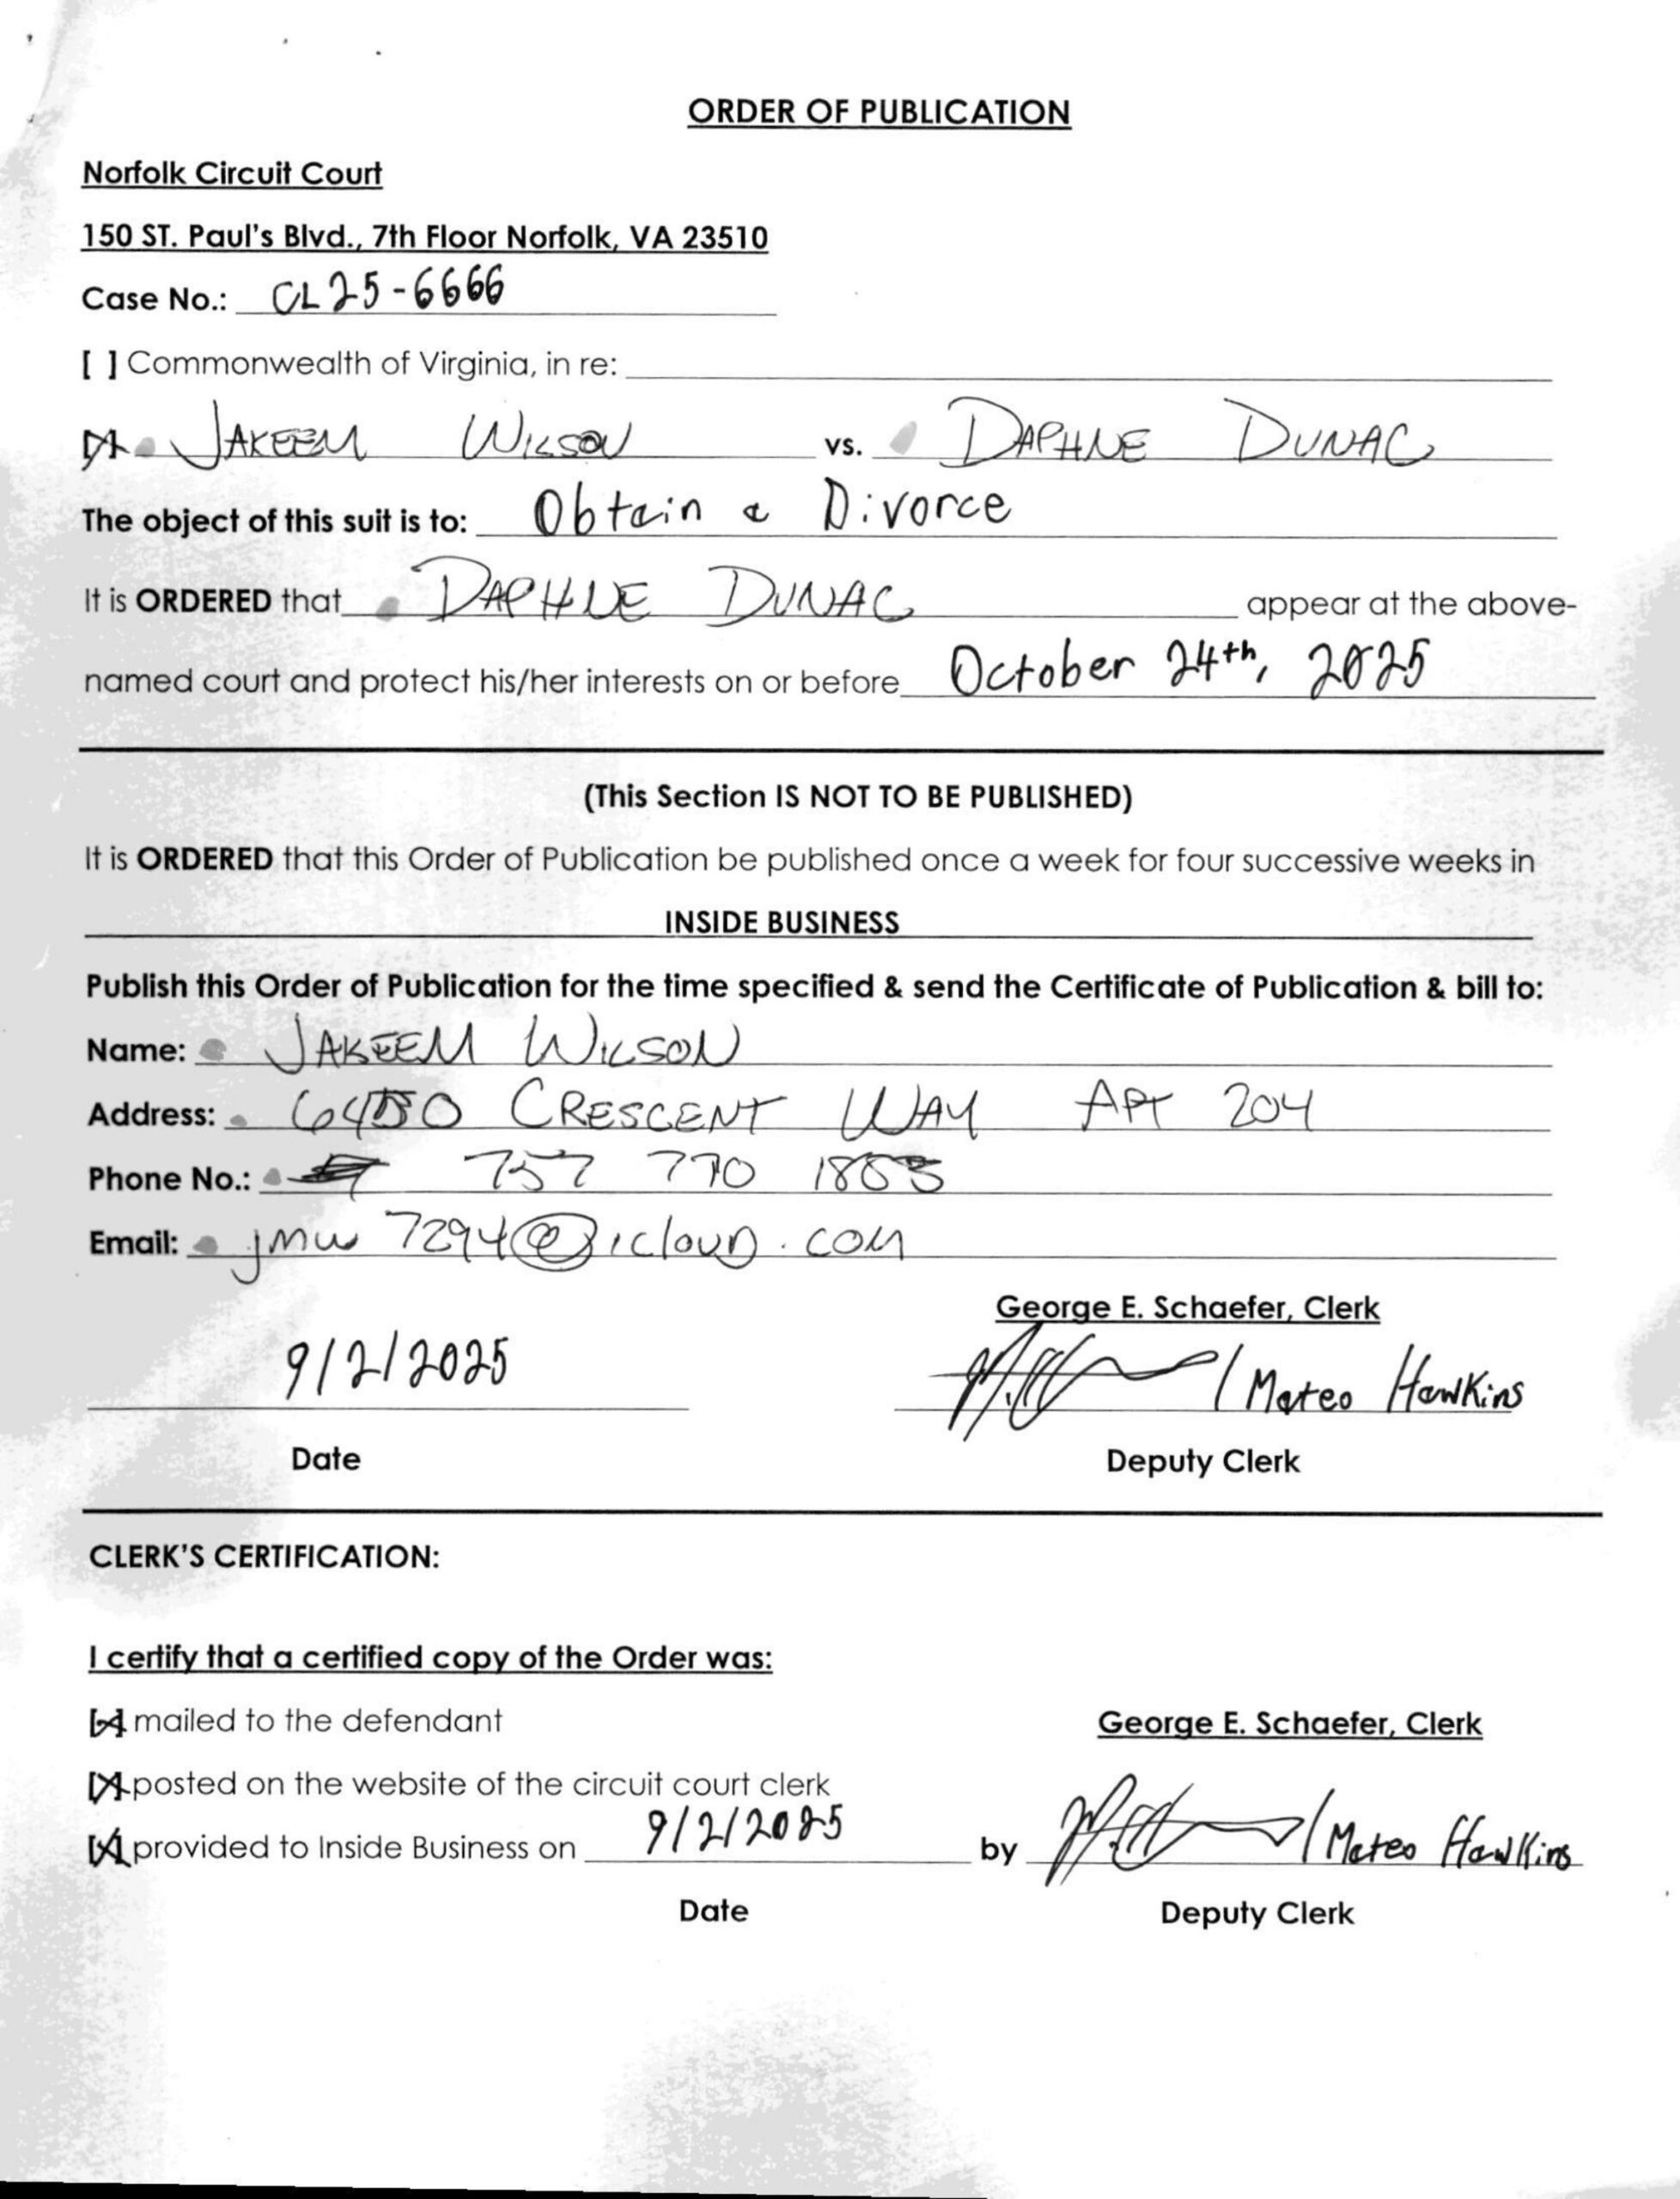 ORDER OF PUBLICATION
Norfolk Circuit Court
150 ST. Paul's Blvd., 7th Floor Norfolk, VA 23510
Case No.: CL25-6666
[ ] Commonwealth of Virginia, in re:
[X] JAKEEM WILSON vs. DAPHNE DUNAC
The object of this suit is to: Obtain a Divorce
It is ORDERED that DAPHNE DUNAC appear at the above-
named court and protect his/her interests on or before October 24th, 2025
(This Section IS NOT TO BE PUBLISHED)
It is ORDERED that this Order of Publication be published once a week for four successive weeks in
INSIDE BUSINESS
Publish this Order of Publication for the time specified & send the Certificate of Publication & bill to:
Name: JAKEEM WILSON
Address: CRESCENT WAY APT 204
Phone No.: 757 770
Email: jmw7294@icloud.com
George E. Schaefer, Clerk
9/2/2025 / Mateo Hawkins
Date Deputy Clerk
CLERK'S CERTIFICATION:
I certify that a certified copy of the Order was:
[X] mailed to the defendant George E. Schaefer, Clerk
[X] posted on the website of the circuit court clerk
[X] provided to Inside Business on 9/2/2025 by / Mateo Hawkins
Date Deputy Clerk